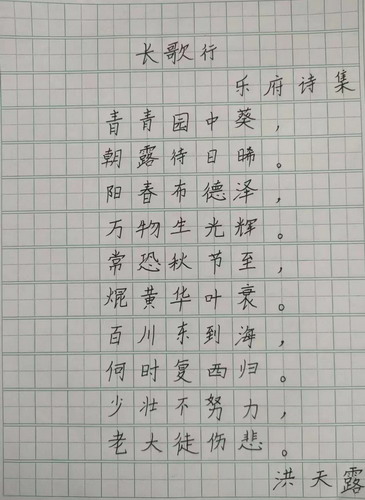 长歌行
乐府诗集
青青园中葵，
朝露待日晞。
阳春布德泽，
万物生光辉。
常恐秋节至，
焜黄华叶衰。
百川东到海，
何时复西归。
少壮不努力，
老大徒伤悲。
洪天露